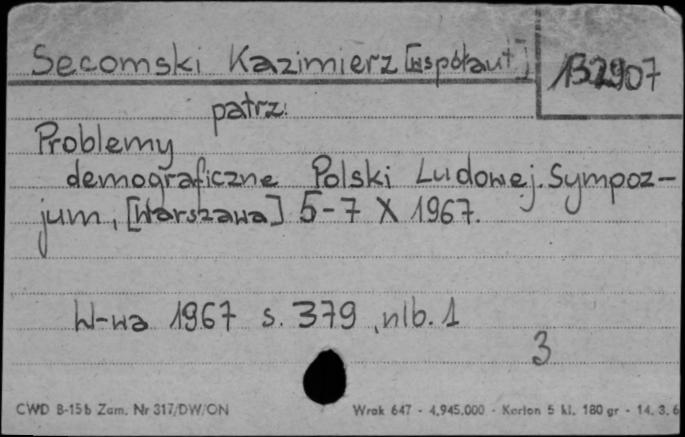 Secomski Kazimierz [współaut.]
132907
patrz:
Problemy
demograficzne Polski Ludowej. Sympoz-
jum, [Warszawa] 5-7 X 1967.
W-wa 1967 s. 379, nlb. 1
3
CWD B-15b Zam. Nr 317/DW/ON
Wrak 647 - 4.945.000 - Karton 5 kl. 180 gr - 14. 3. 6